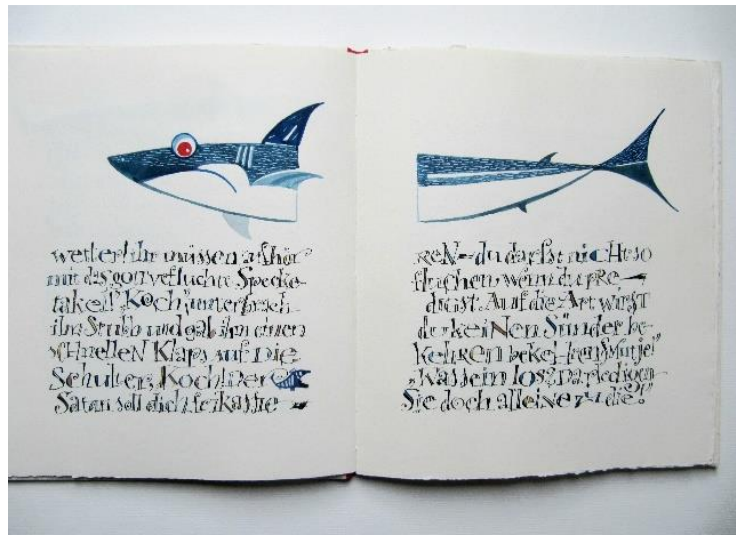 wetter! ihr müssen aufhör
mit das gottverfluchte Specke-
takel!" "Koch", unterbrach
ihn Stubb und gab ihm einen
schnellen Klaps auf die
Schulter, "Koch! Der
Satan soll dich frikassie
ren – du darfst nicht so
fluchen, wenn du pre
digst. Auf die Art wirst
du keinen Sünder be-
kehren
"Was
Sie doch alleine zu die!"